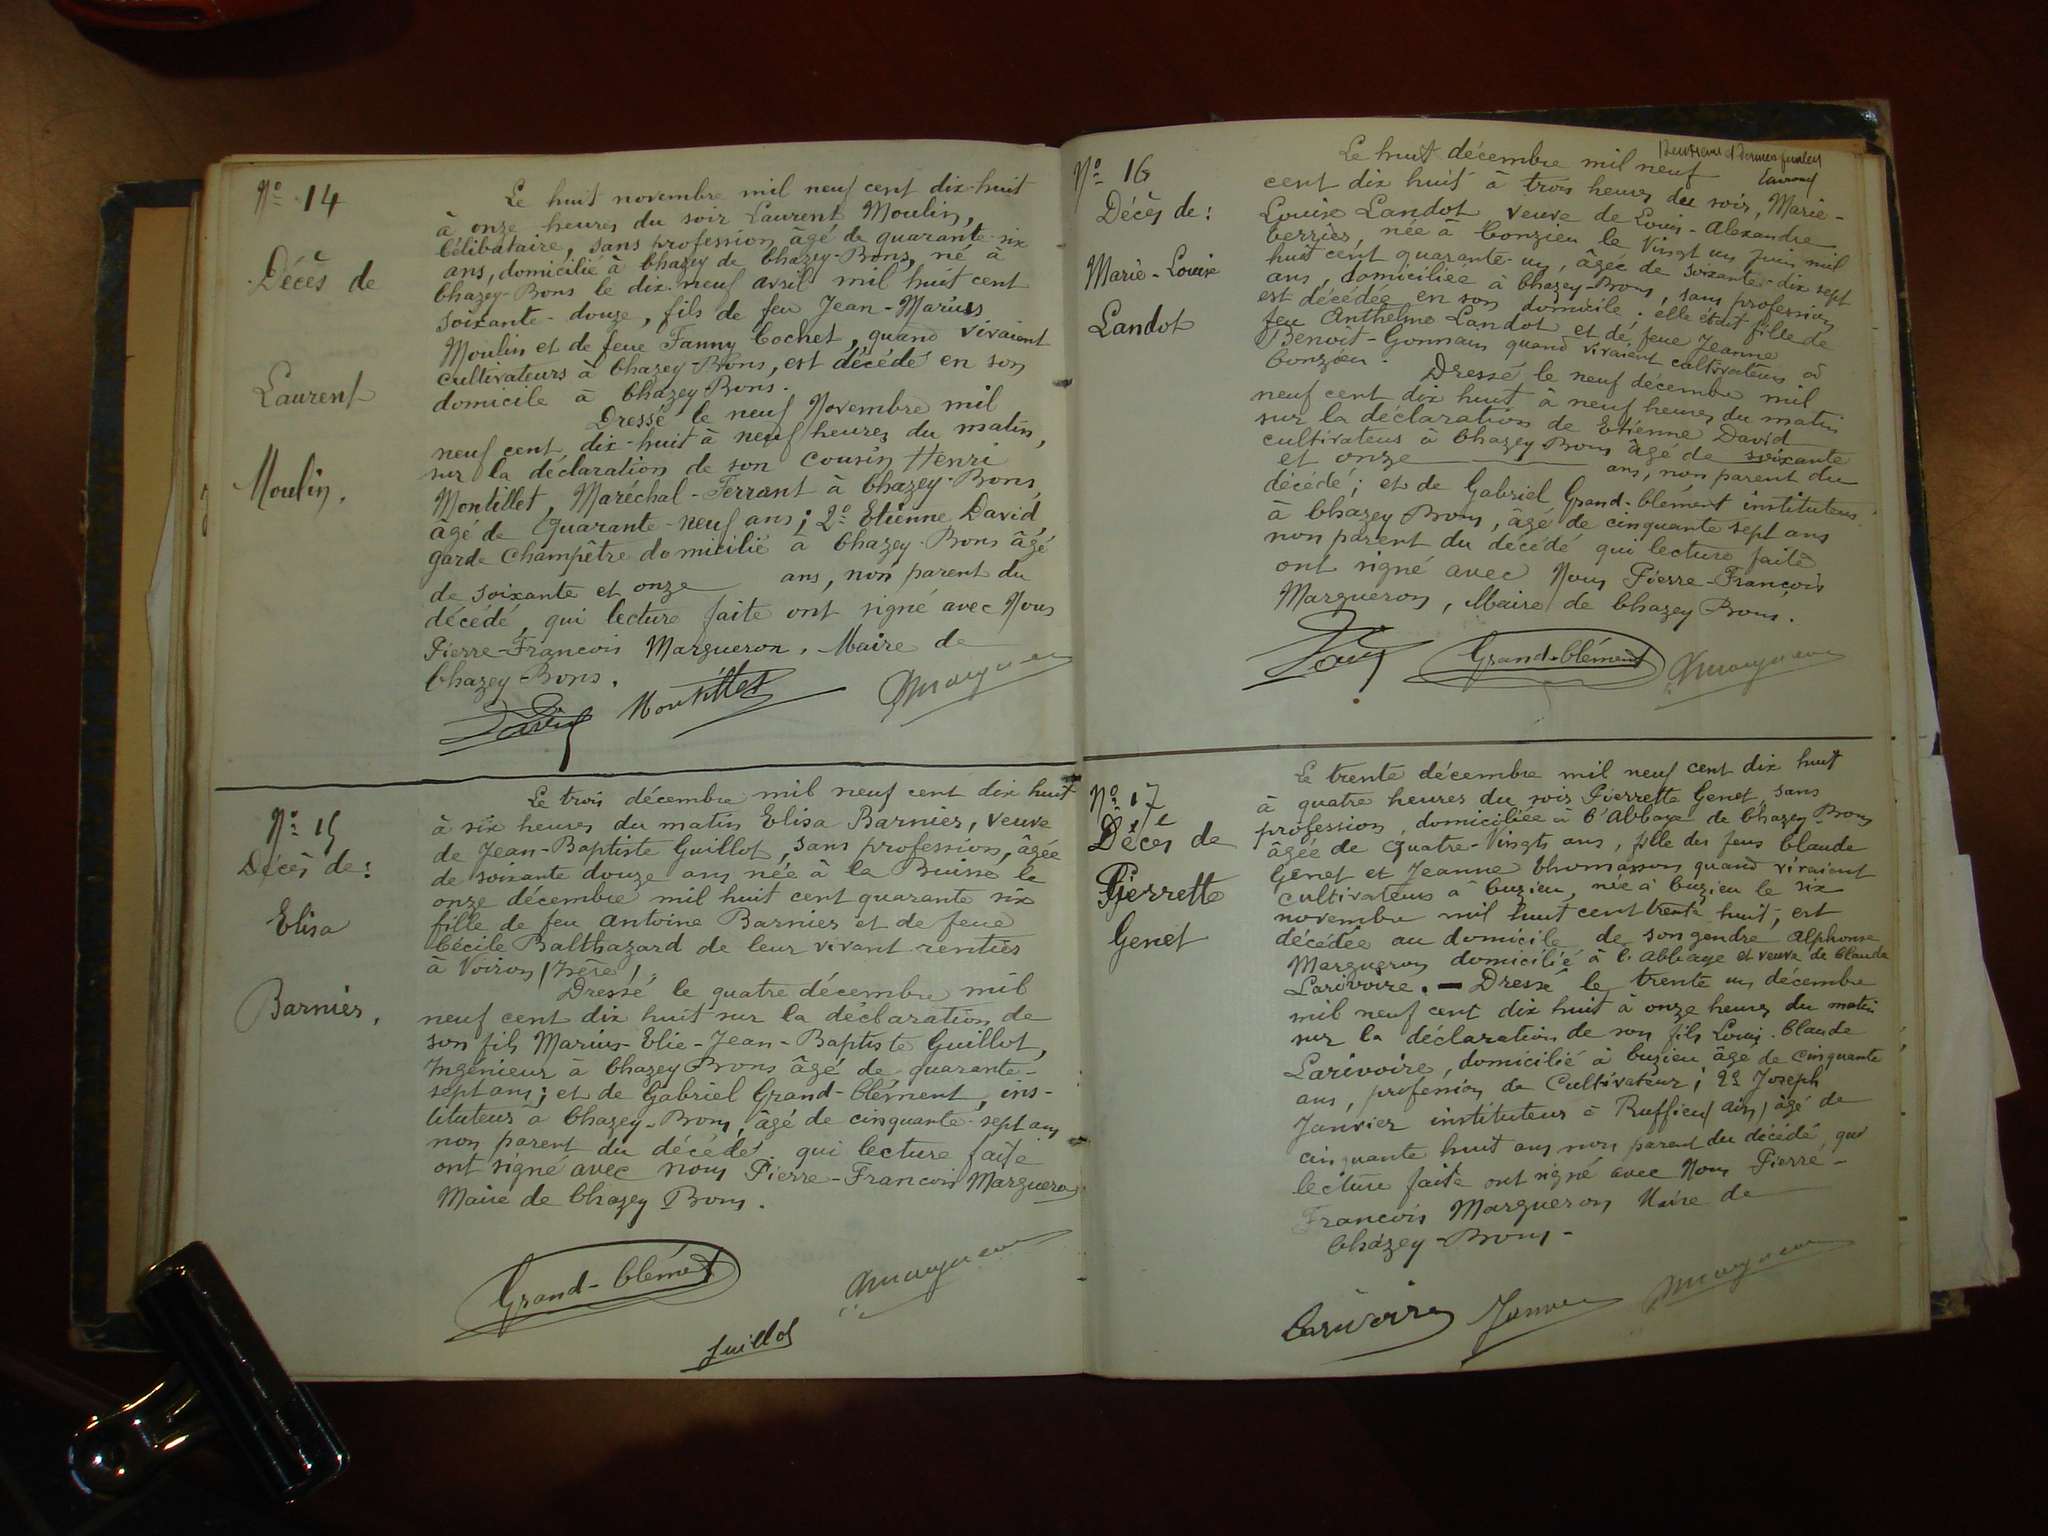 Nº 14
Décès de
Laurent
Moulin.
Le huit novembre mil neuf cent dix-huit
à onze heures du soir Laurent Moulin,
célibataire, sans profession âgé de quarante-six
ans, domicilié à Chazey de Chazey-Bons, né à
Chazey-Bons le dix-neuf avril mil huit cent
soixante-douze, fils de feu Jean-Marius
Moulin et de feue Fanny Cochet, quand vivaient
cultivateurs à Chazey-Bons, est décédé en son
domicile à Chazey-Bons.
Dressé le neuf Novembre mil
neuf cent dix-huit à neuf heures du matin,
sur la déclaration de son cousin Henri
Montillet, Maréchal-Ferrant à Chazey-Bons,
âgé de Quarante-neuf ans; 2º Etienne David,
garde champêtre domicilié à Chazey-Bons âgé
de soixante et onze ans, non parent du
décédé, qui lecture faite ont signé avec Nous
Pierre-François Margueron, Maire de
Chazey-Bons.
David Montillet Margueron
Nº 15
Décès de:
Elisa
Barnier.
Le trois décembre mil neuf cent dix huit
à six heures du matin Elisa Barnier, veuve
de Jean-Baptiste Guillot, sans profession, âgée
de soixante douze ans née à la Buisse le
onze décembre mil huit cent quarante six
fille de feu Antoine Barnier et de feue
Cécile Balthazard de leur vivant rentiers
à Voiron (Isère).
Dressé le quatre décembre mil
neuf cent dix huit sur la déclaration de
son fils Marius-Elie-Jean-Baptiste Guillot,
Ingénieur à Chazey Bons âgé de quarante-
sept ans; et de Gabriel Grand-Clément, ins-
tituteur à Chazey-Bons, âgé de cinquante-sept ans
non parent du décédé. qui lecture faite
ont signé avec nous Pierre-François Margueron
Maire de Chazey Bons.
Grand-Clément Margueron
Guillot
Nº 16
Décès de:
Marie-Louise
Landot
Le huit décembre mil neuf
cent dix huit à trois heures du soir, Marie-
Louise Landot veuve de Louis-Alexandre
née à Conzieu le vingt un juin mil
huit cent quarante-un, âgée de soixante-dix sept
ans, domiciliée à Chazey-Bons, sans profession
est décédée en son domicile; elle était fille de
feu Anthelme Landot et de feue Jeanne
Benoît-Gonnain quand vivaient cultivateurs à
Conzieu. Dressé le neuf décembre mil
neuf cent dix huit à neuf heures du matin
sur la déclaration de Etienne David
cultivateur à Chazey Bons âgé de soixante
et onze ans, non parent du
décédé; et de Gabriel Grand-Clément instituteur
à Chazey Bons, âgé de cinquante sept ans
non parent du décédé qui lecture faite
ont signé avec Nous Pierre-François
Margueron, Maire de Chazey Bons.
David Grand-Clément Margueron
Nº 17
Décès de
Pierrette
Genet
Le trente décembre mil neuf cent dix huit
à quatre heures du soir Pierrette Genet, sans
profession, domiciliée à l'Abbaye de Chazey-Bons
âgée de Quatre-Vingts ans, fille des feus Claude
Genet et Jeanne Thomasson quand vivaient
cultivateurs à Cuzieu, née à Cuzieu le six
novembre mil huit cent trente huit, est
décédée au domicile de son gendre Alphonse
Margueron domicilié à l'Abbaye et veuve de Claude
Larivoire. - Dressé le trente un décembre
mil neuf cent dix huit à onze heures du matin
sur la déclaration de son fils Louis-Claude
Larivoire, domicilié à Cuzieu âgé de cinquante
ans, profession de Cultivateur; 2º Joseph
Janvier instituteur à Ruffieu (Ain) âgé de
cinquante huit ans non parent du décédé, qui
lecture faite ont signé avec Nous Pierre-
François Margueron Maire de
Chazey-Bons-
Larivoire Janvier Margueron